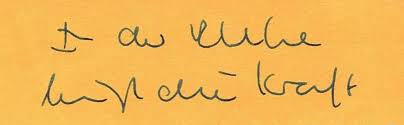 In der Ruhe
liegt die Kraft